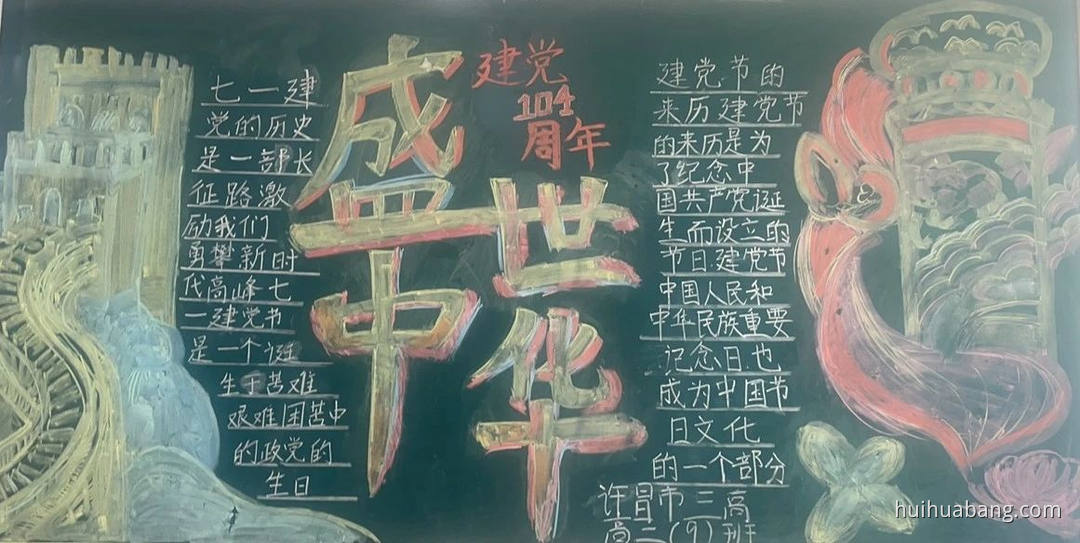 七一建
党的历史
是一部长
征路激
励我们
勇攀新时
代高峰七
一建党节
是一个诞
生于苦难
艰难困苦中
的政党的
生日
盛世
中华
建党
104
周年
建党节的
来历建党节
的来历是为
了纪念中
国共产党诞
生而设立的
节日建党节
中国人民和
中华民族重要
记念日也
成为中国节
日文化
的一个部分
许昌市三高
高二(9)班
huihuabang.com